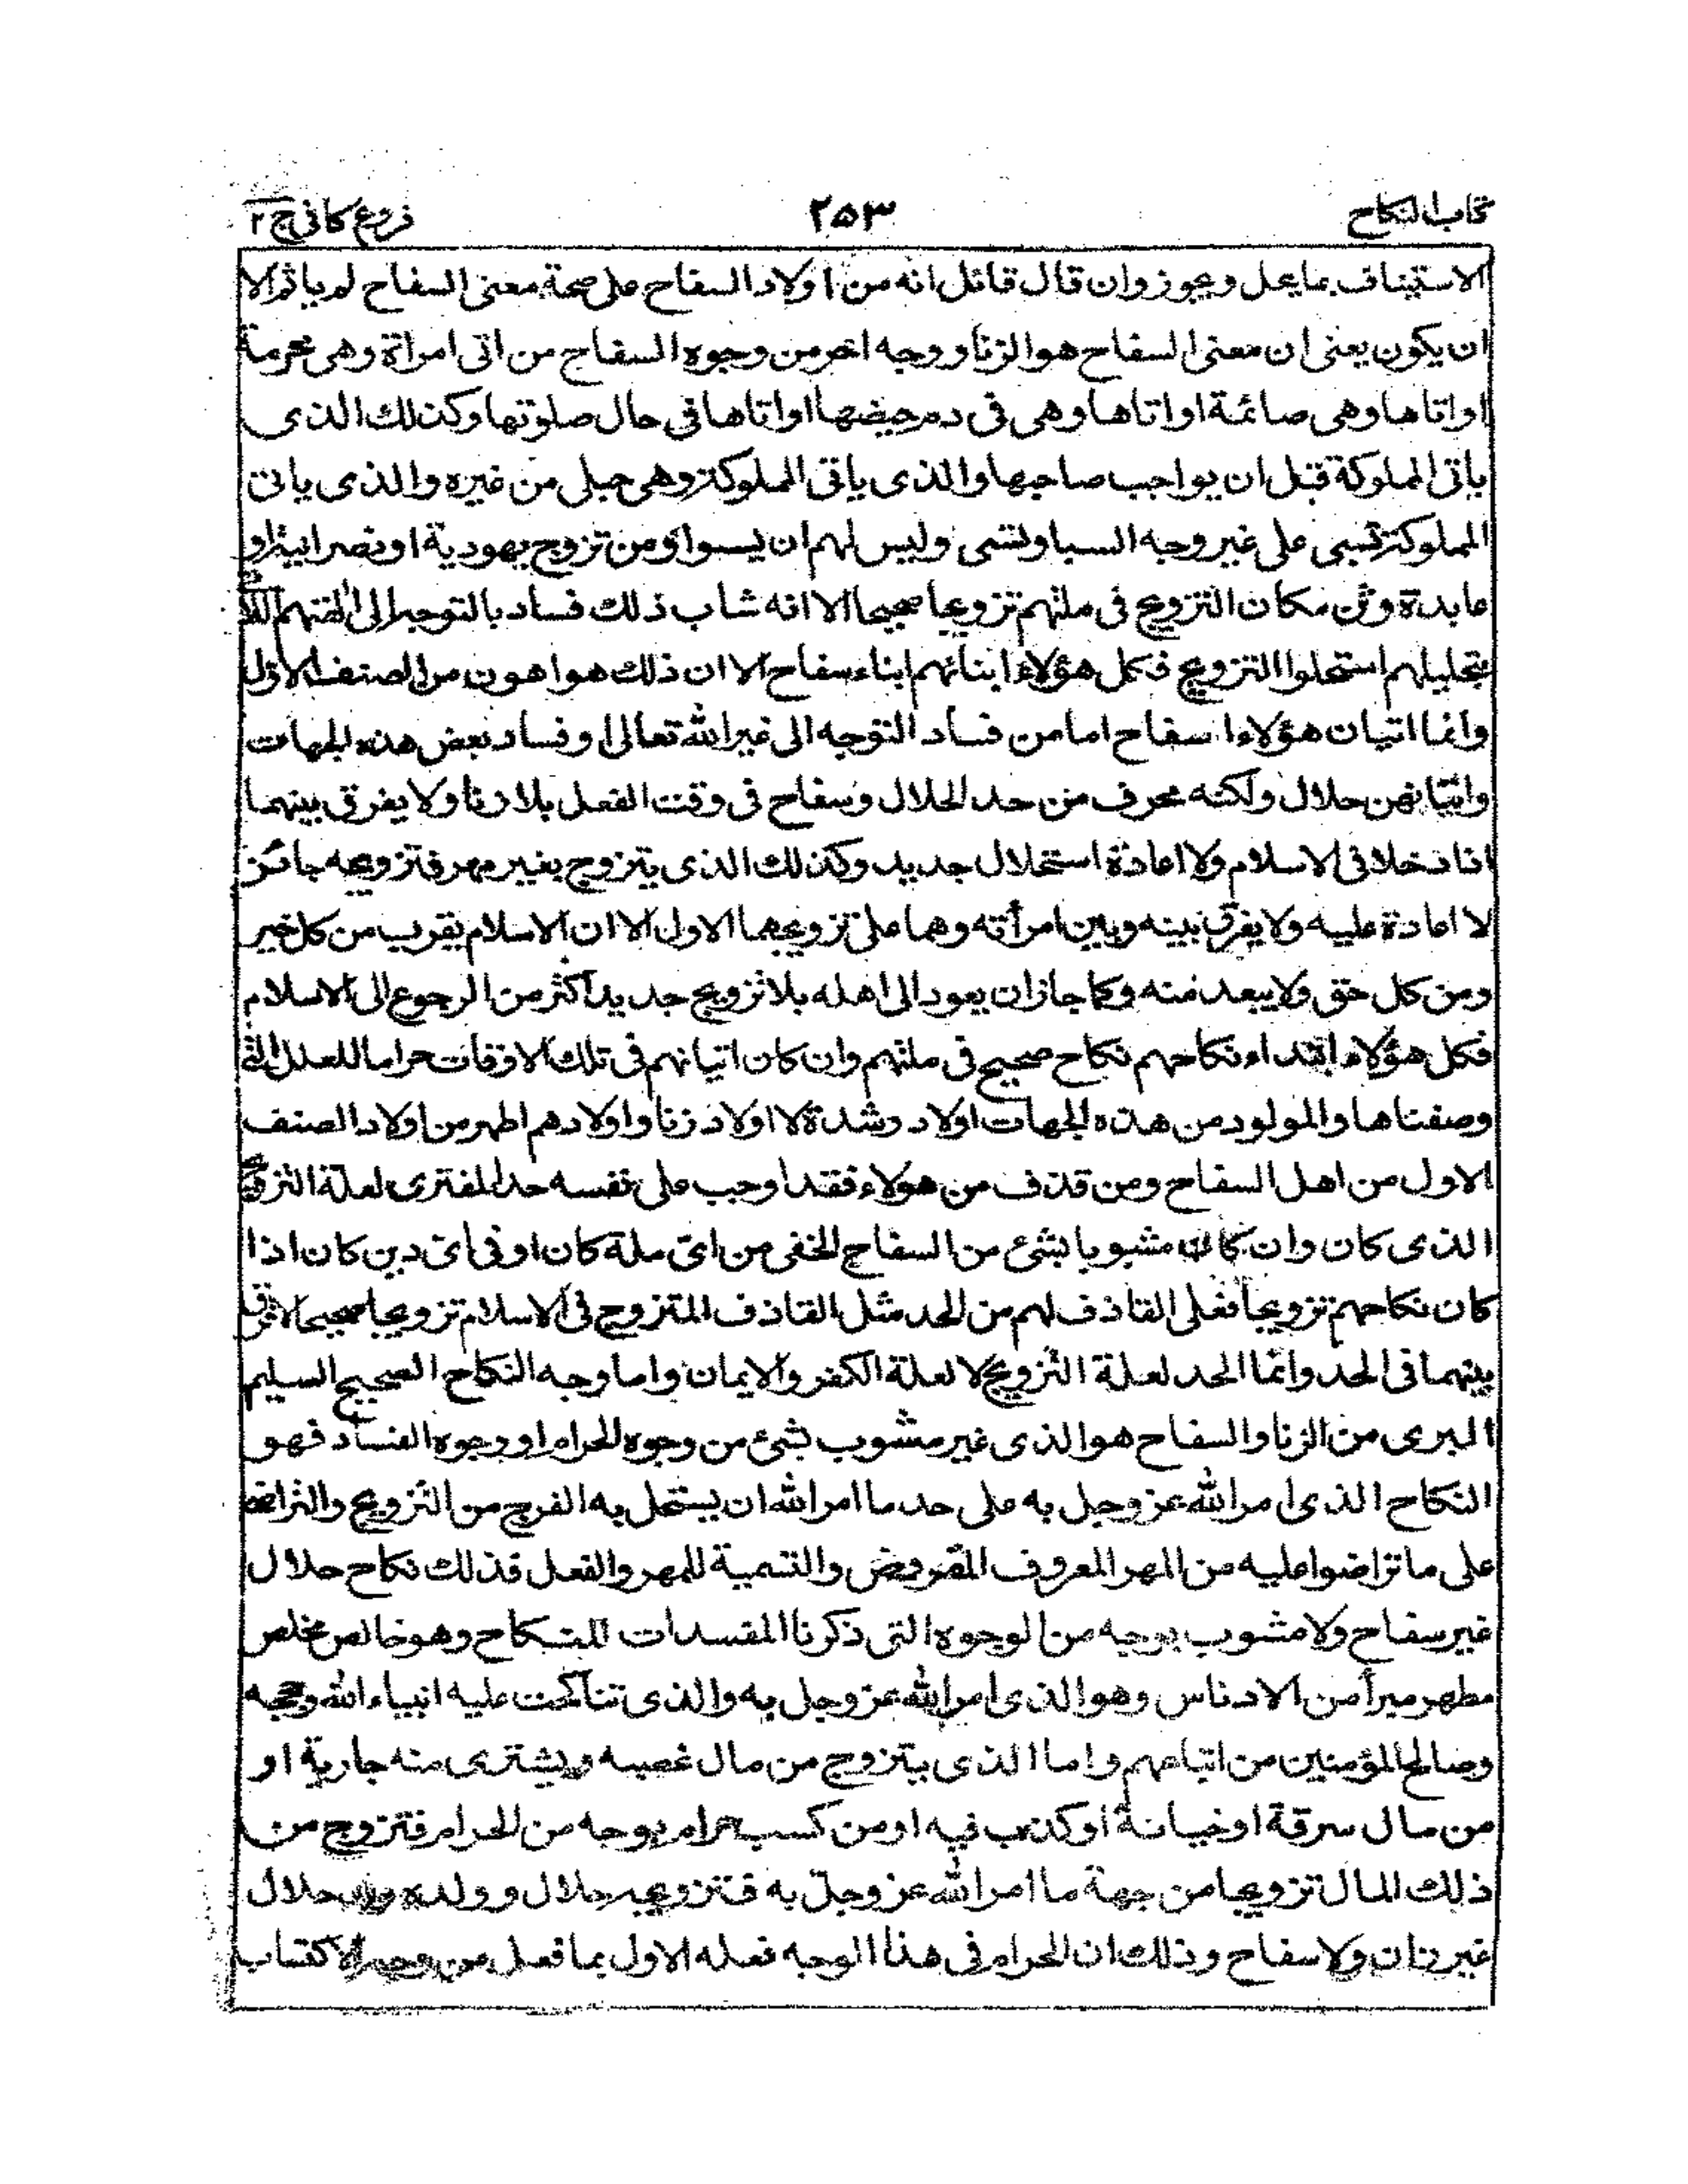 كتاب النكاح ٢٥٣ فروع كافي ج ٢
الاستيناف بما يحل ويجوز وان قال قائل انه من اولاد السفاح على صحة معنى السفاح لم ياثم الا
ان يكون يعنى ان معنى السفاح هو الزنا ووجه اخر من وجوه السفاح من اتى امراة وهى محرمة
او اتاها وهى صائمة او اتاها وهى فى دم حيضها او اتاها فى حال صلوتها وكذلك الذى
ياتى المملوكة قبل ان يواجب صاحبها والذى ياتى المملوكة وهى حبلى من غيره والذى ياتى
المملوكة تسبى على غير وجه السبا وتسبى وليس لهم ان يسبوا ومن تزوج يهودية او نصرانية او
عابدة وثن مكان التزويج فى ملتهم تزويجا صحيحا الا انه شاب ذلك فساد بالتوجه الى الهتهم اللاتى
بتحليلهم استحلوا التزويج فكل هؤلاء ابنائهم ابناء سفاح الا ان ذلك هو اهون من الصنف الاول
وانما اتيان هؤلاء السفاح اما من فساد التوجه الى غير الله تعالى او فساد بعض هذه الجهات
واتيانهن حلال ولكنه محرف من حد الحلال وسفاح فى وقت الفعل بلا زنا ولا يفرق بينهما
اذا دخلا فى الاسلام ولا اعادة استحلال جديد وكذلك الذى يتزوج بغير مهر فتزويجه جائز
لا اعادة عليه ولا يفرق بينه وبين امرأته وهما على تزويجهما الاول الا ان الاسلام يقرب من كل خير
ومن كل حق ولا يبعد منه وكما جاز ان يعود الى اهله بلا تزويج جديد اكثر من الرجوع الى الاسلام
فكل هؤلاء ابتداء نكاحهم نكاح صحيح فى ملتهم وان كان اتيانهم فى تلك الاوقات حراما للعلل التى
وصفناها والمولود من هذه الجهات اولاد رشدة لا اولاد زنا واولادهم اطهر من اولاد الصنف
الاول من اهل السفاح ومن قذف من هؤلاء فقد اوجب على نفسه حد المفترى لعلة التزويج
الذى كان وان كان مشبوبا بشئ من السفاح الخفى من اى ملة كان او فى اى دين كان اذا
كان نكاحهم تزويجا فعلى القاذف لهم من الحد مثل القاذف للمتزوج فى الاسلام تزويجا صحيحا لا فرق
بينهما فى الحد وانما الحد لعلة التزويج لا لعلة الكفر والايمان واما وجه النكاح الصحيح السليم
البرى من الزنا والسفاح هو الذى غير مشوب بشئ من وجوه الحرام او وجوه الفساد فهو
النكاح الذى امر الله عز وجل به على حد ما امر الله ان يستحل به الفرج من التزويج والتراضى
على ما تراضوا عليه من المهر المعروف المفروض والتسمية للمهر والفعل فذلك نكاح حلال
غير سفاح ولا مشوب بوجه من الوجوه التى ذكرنا المفسدات للنكاح وهو خالص مخلص
مطهر مبرأ من الادناس وهو الذى امر الله عز وجل به والذى تناكحت عليه انبياء الله وحججه
وصالح المؤمنين من اتباعهم واما الذى يتزوج من مال غصبه ويشترى منه جارية او
من مال سرقة او خيانة او كذب فيه او من كسب حرام بوجه من الحرام فتزوج من
ذلك المال تزويجا من جهة ما امر الله عز وجل به فتزويجه حلال وولده ولد حلال
غير زان ولا سفاح وذلك ان الحرام فى هذا الوجه فعله الاول بما فعل من وجه الاكتساب